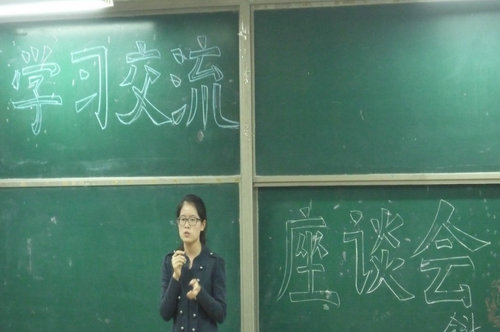 学习交流
座谈会